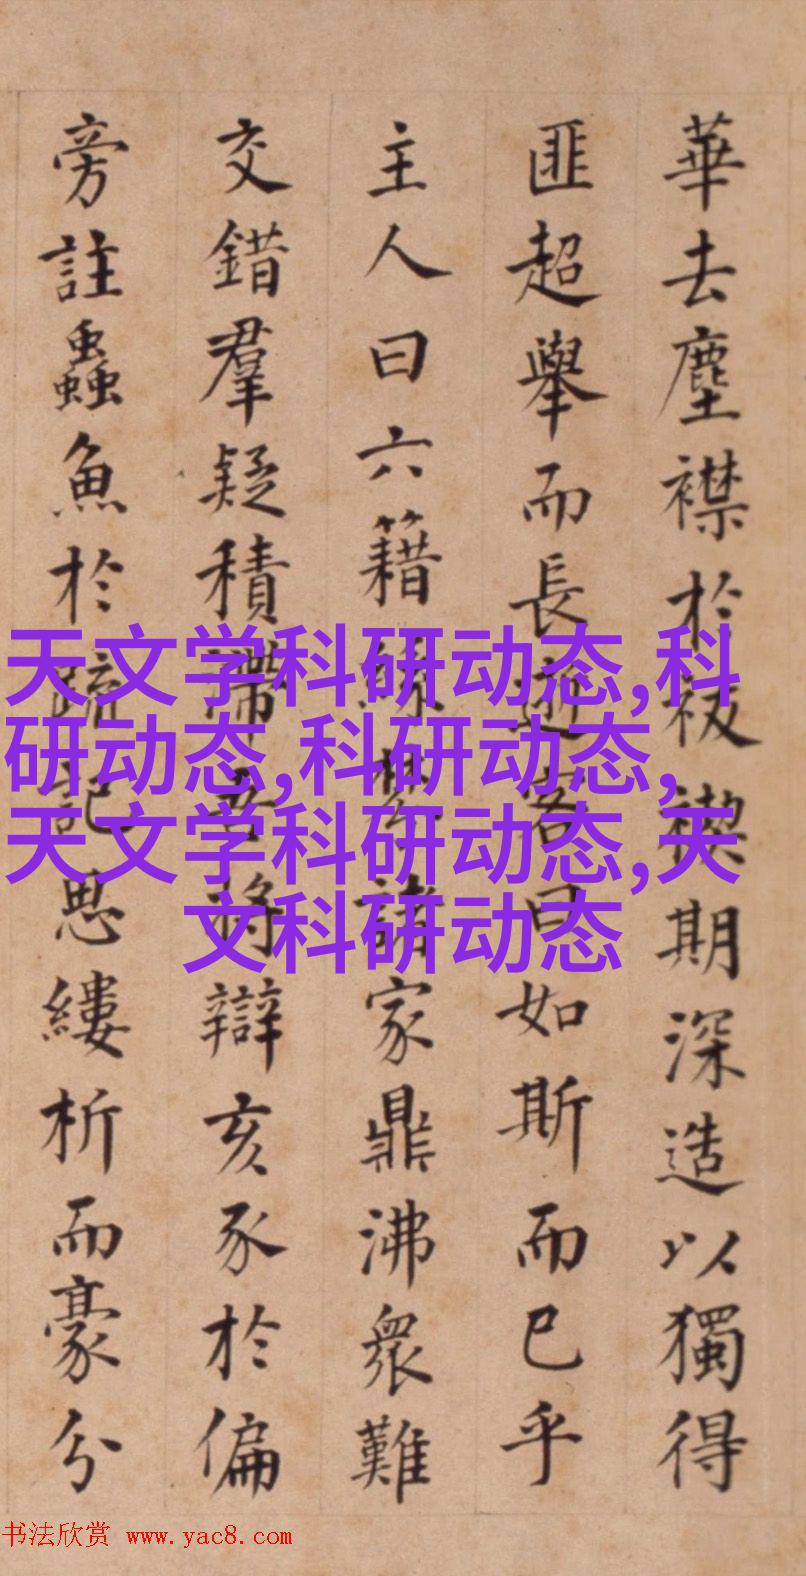 華去塵襟於祓禊期深造以獨得
匪超舉而長逝客曰如斯而已乎
主人曰六籍諸家鼎沸衆難
交錯羣疑積滯吾將辯亥豕於偏
旁註蟲魚於疏記思縷析而豪分
天文学科研动态,科
研动态,科研动态,
天文学科研动态,天
文科研动态
书法欣赏 www.yac8.com